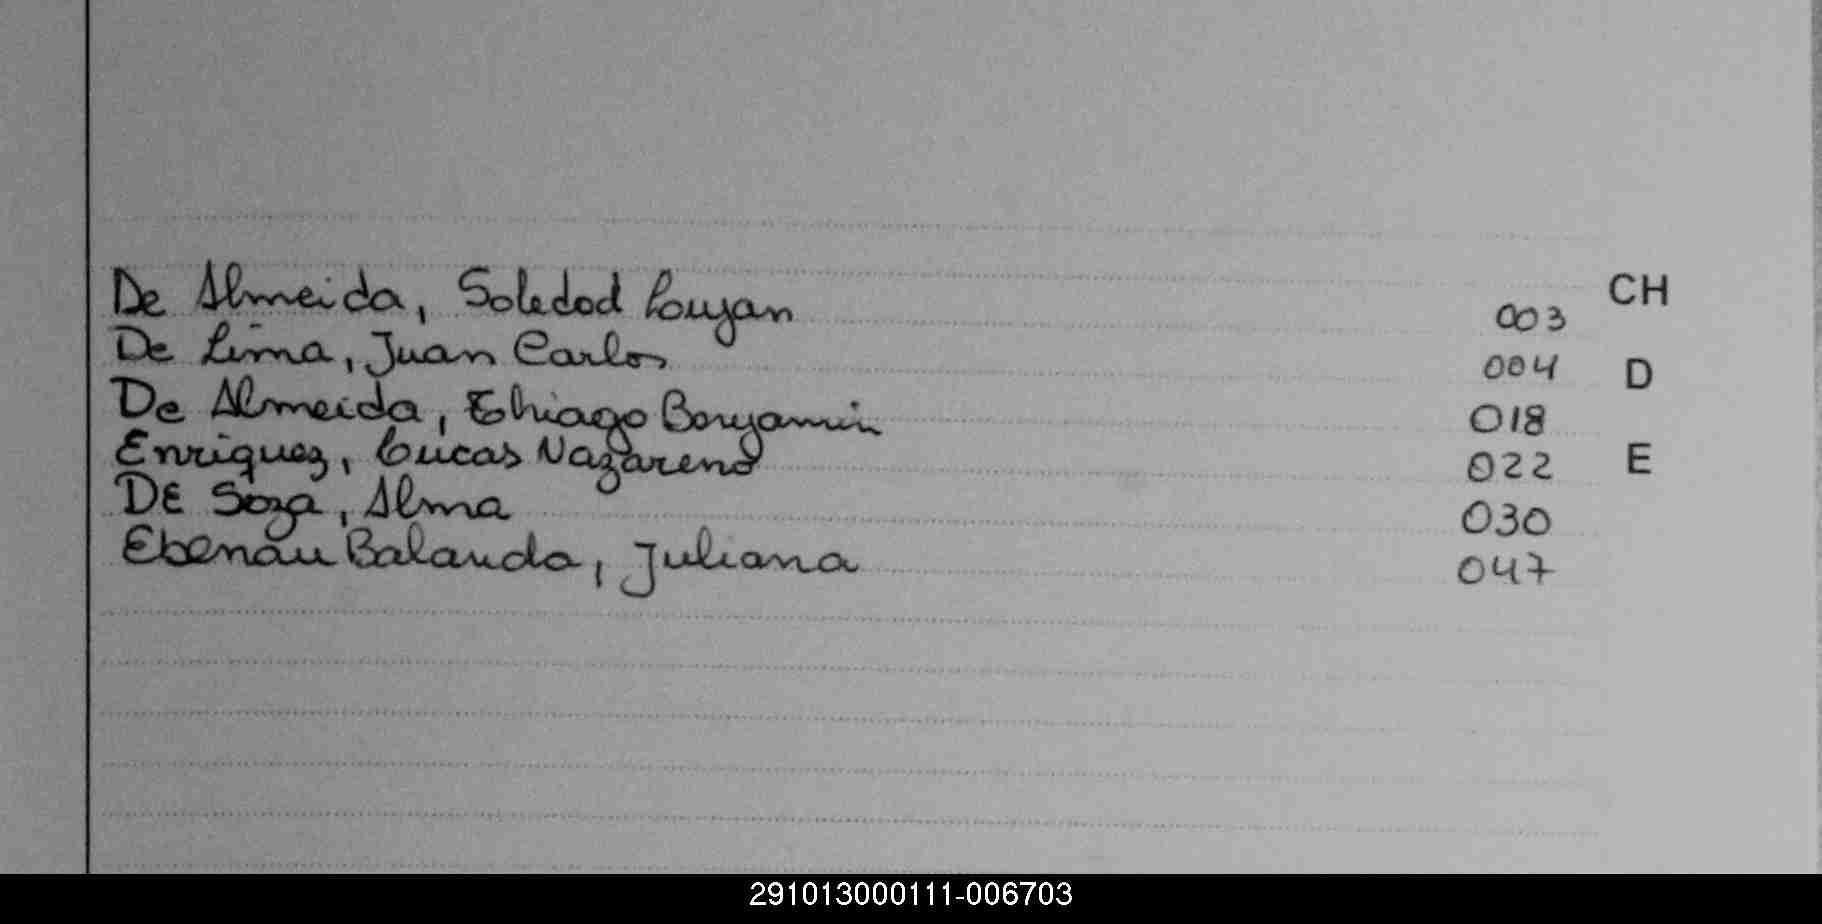 De Almeida, Soledad Loujan 003 CH
De Lima, Juan Carlos 004 D
De Almeida, Thiago Benjamin 018
Enriquez, Lucas Nazareno 022 E
DE Soza, Alma 030
Ebenau Balanda, Juliana 047
291013000111-006703